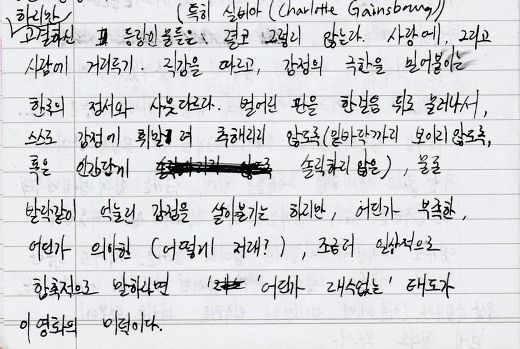 하지만 (특히 실비아 (Charlotte Gainsbourg))
고결하신 등장인물들은, 결코 그렇지 않는다. 사랑에, 그리고
사람에 거리두기. 직감을 따르고, 감정의 극한을 밀어붙이는
한국의 정서와 사뭇 다르다. 벌어진 판을 한걸음 뒤로 물러나서,
스스로 감정에 휘말려 추해지지 않도록 (밑바닥까지 보이지 않도록,
혹은 인간답게 솔직하지 않은), 물론
발락같이 억눌린 감정을 쏟아붓기는 하지만, 어딘가 부족한,
어딘가 의아한 (어떻게 저래?), 조금 더 일상적으로
함축적으로 말하자면 '어딘가 재수없는' 태도가
이 영화의 미덕이다.